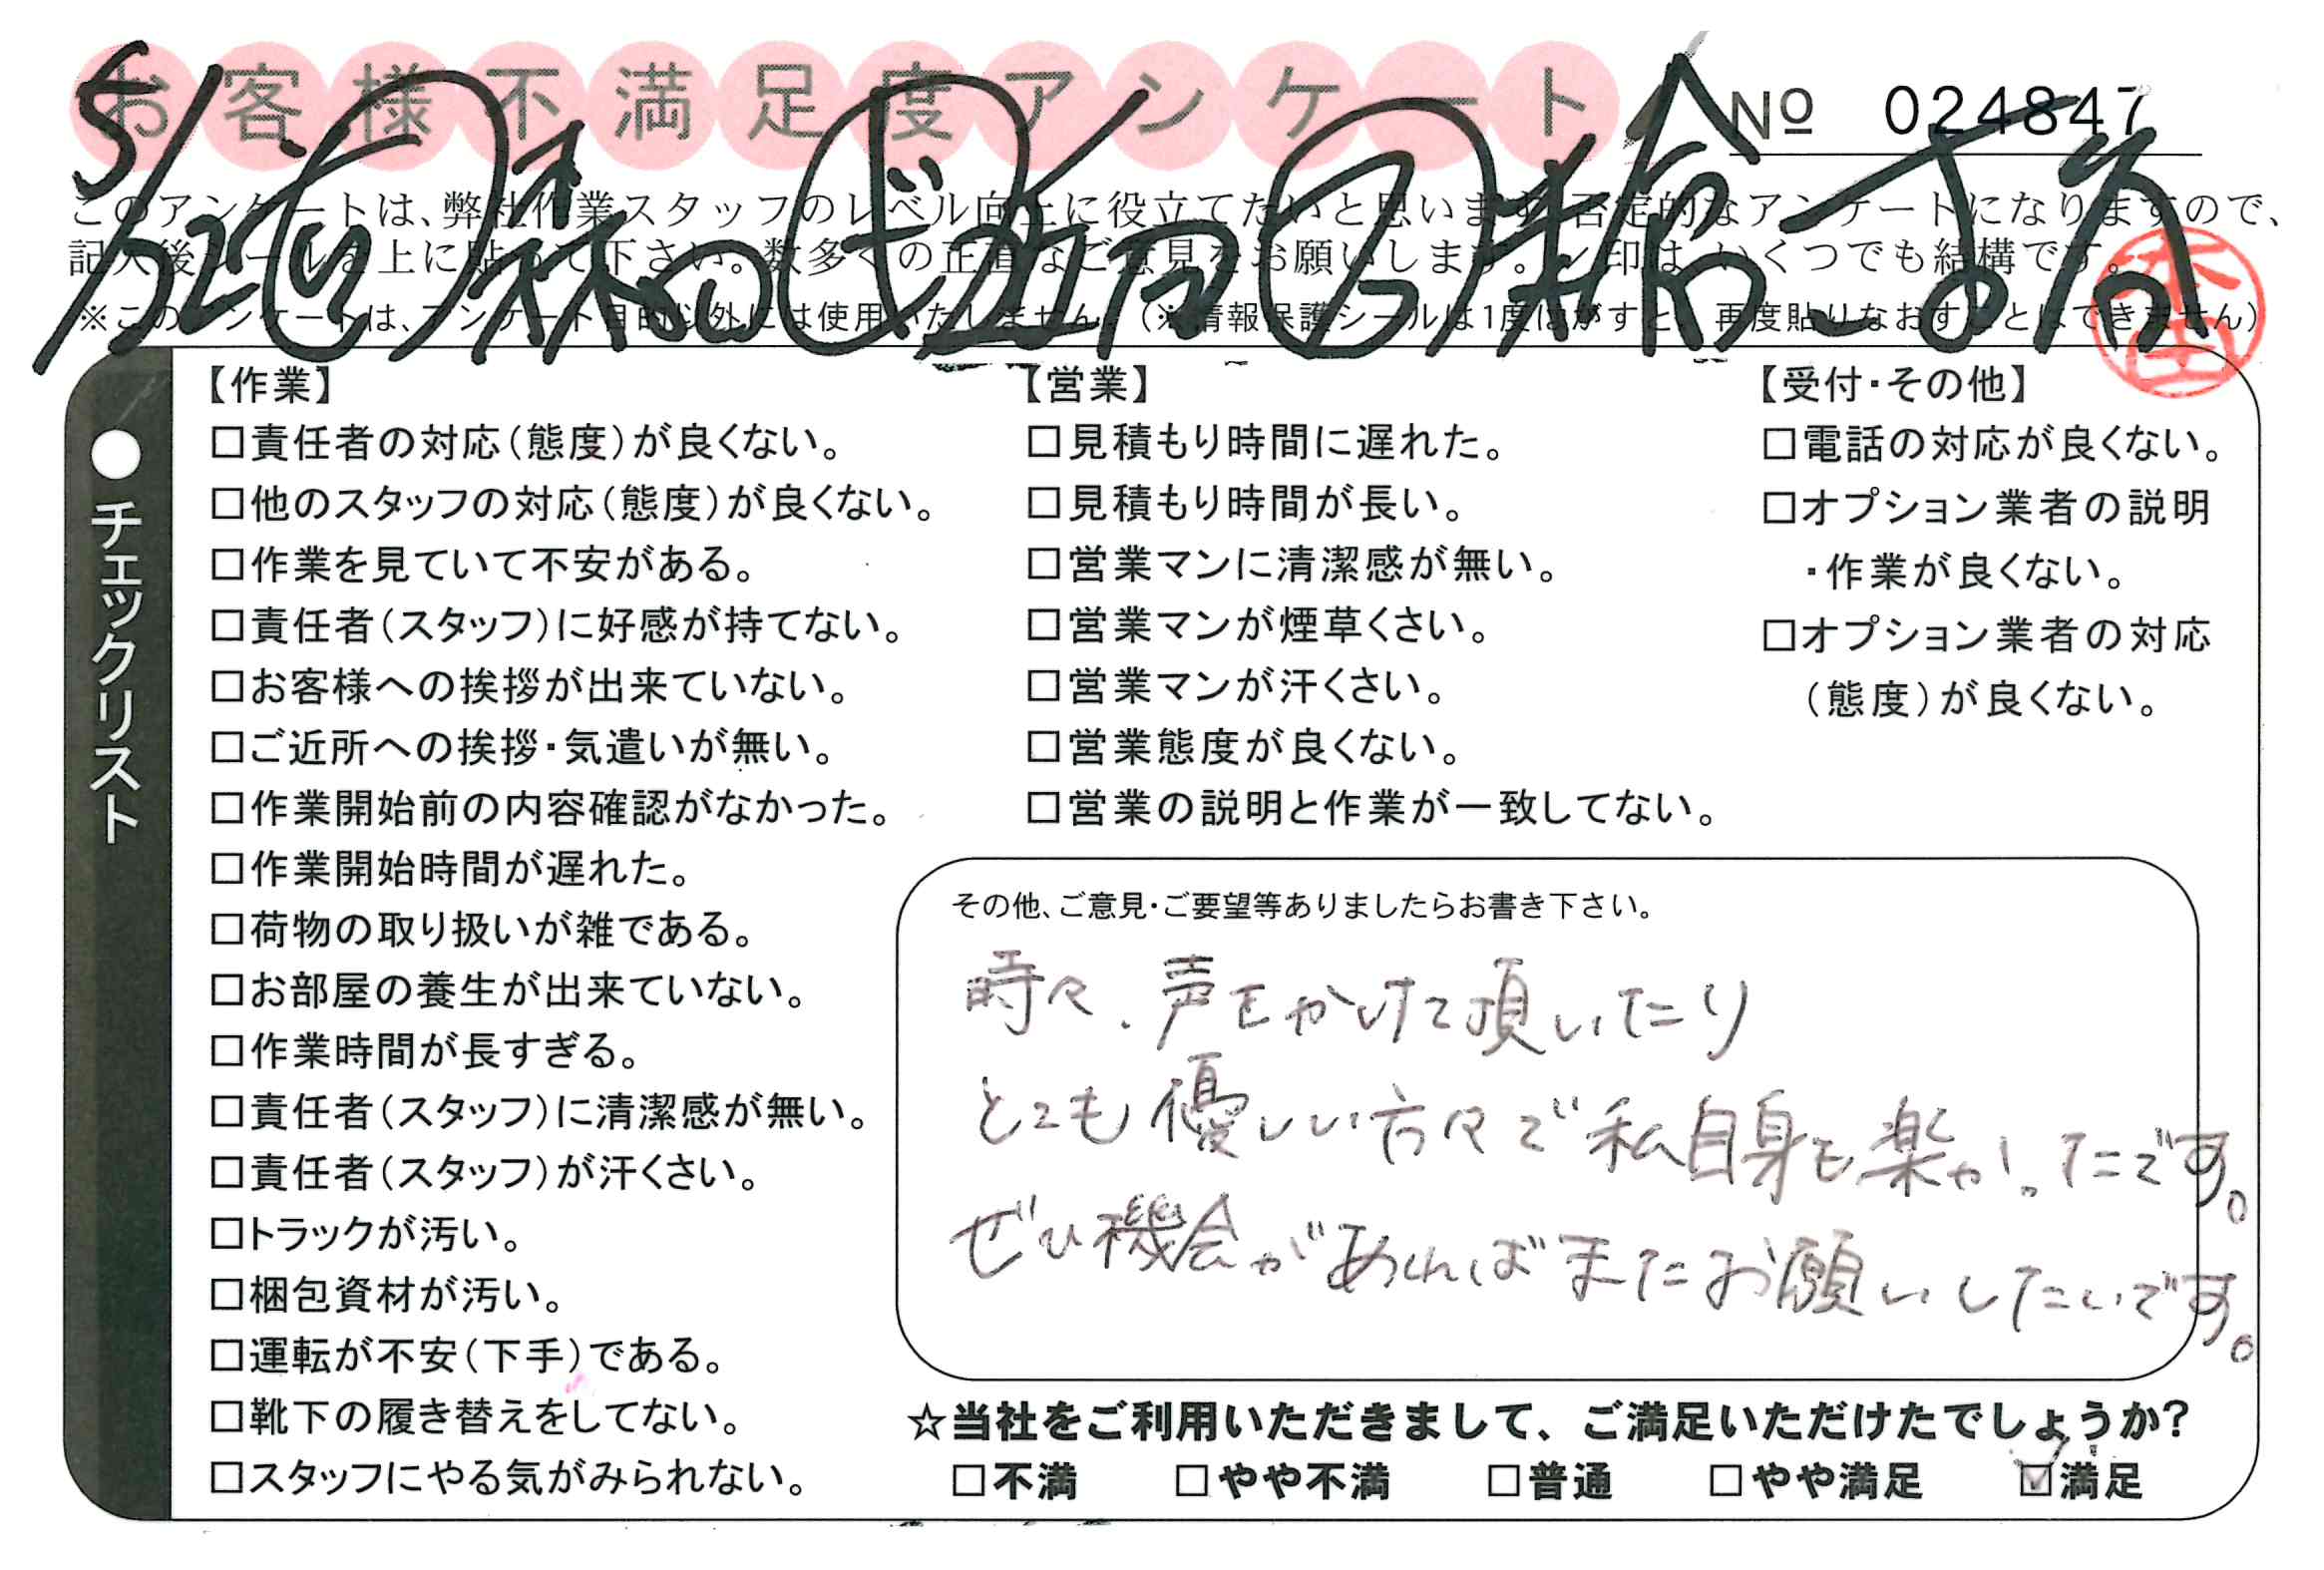 お客様不満足度アンケート
№ 024847
このアンケートは、弊社作業スタッフのレベル向上に役立てたいと思います。否定的なアンケートになりますので、
記入後シールを上に貼って下さい。数多くの正直なご意見をお願いします。レ印は、いくつでも結構です。
※このアンケートは、アンケート目的以外には使用いたしません。(※情報保護シールは1度はがすと、再度貼りなおすことはできません)
チェックリスト
【作業】
□責任者の対応(態度)が良くない。
□他のスタッフの対応(態度)が良くない。
□作業を見ていて不安がある。
□責任者(スタッフ)に好感が持てない。
□お客様への挨拶が出来ていない。
□ご近所への挨拶・気遣いが無い。
□作業開始前の内容確認がなかった。
□作業開始時間が遅れた。
□荷物の取り扱いが雑である。
□お部屋の養生が出来ていない。
□作業時間が長すぎる。
□責任者(スタッフ)に清潔感が無い。
□責任者(スタッフ)が汗くさい。
□トラックが汚い。
□梱包資材が汚い。
□運転が不安(下手)である。
□靴下の履き替えをしてない。
□スタッフにやる気がみられない。
【営業】
□見積もり時間に遅れた。
□見積もり時間が長い。
□営業マンに清潔感が無い。
□営業マンが煙草くさい。
□営業マンが汗くさい。
□営業態度が良くない。
□営業の説明と作業が一致してない。
【受付・その他】
□電話の対応が良くない。
□オプション業者の説明
・作業が良くない。
□オプション業者の対応
(態度)が良くない。
その他、ご意見・ご要望等ありましたらお書き下さい。
時々、声をかけて頂いたり
とても優しい方々で私自身も楽かったです。
ぜひ機会があればまたお願いしたいです。
☆当社をご利用いただきまして、ご満足いただけたでしょうか?
□不満 □やや不満 □普通 □やや満足 ☑満足